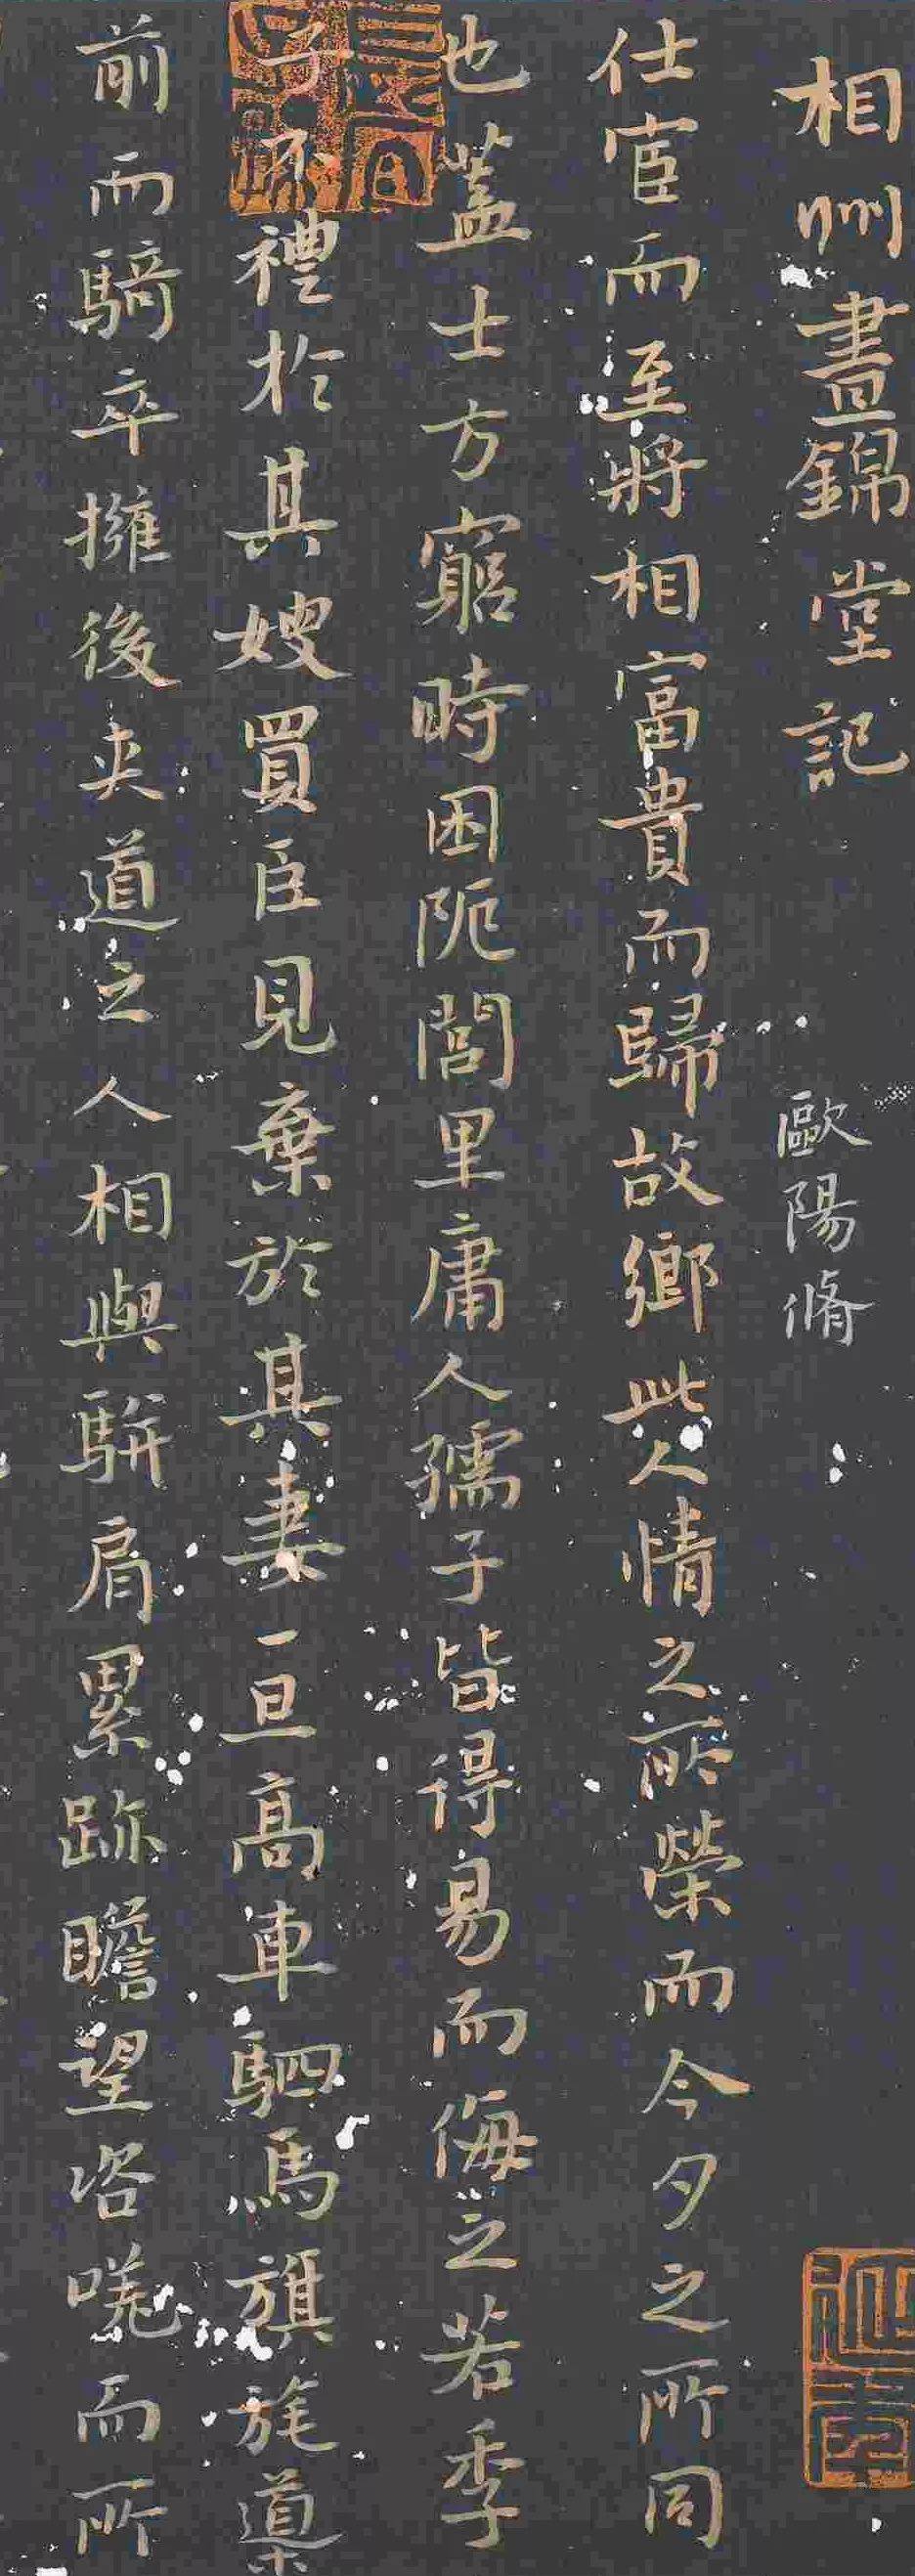 相州晝錦堂記 歐陽脩
仕宦而至將相富貴而歸故鄉此人情之所榮而今夕之所同
也蓋士方窮時困阨閭里庸人孺子皆得易而侮之若季
子不禮於其嫂買臣見棄於其妻一旦高車駟馬旗旄導
前而騎卒擁後夾道之人相與駢肩累跡瞻望咨嗟而所